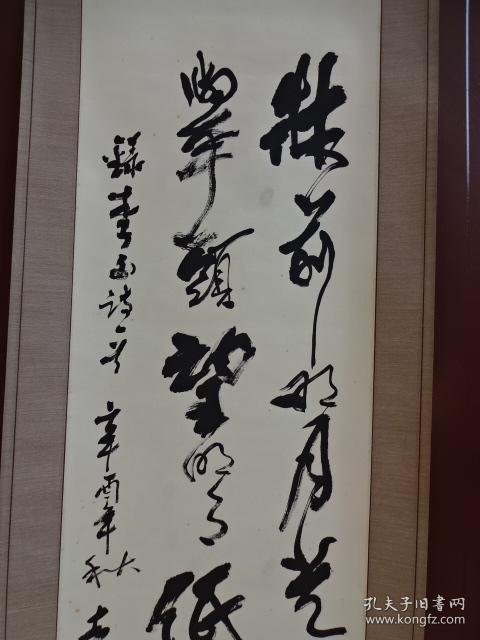 牀前明月光
舉頭望明月低
錄李白詩一首 辛酉年秋
孔夫子旧书网
www.kongfz.com